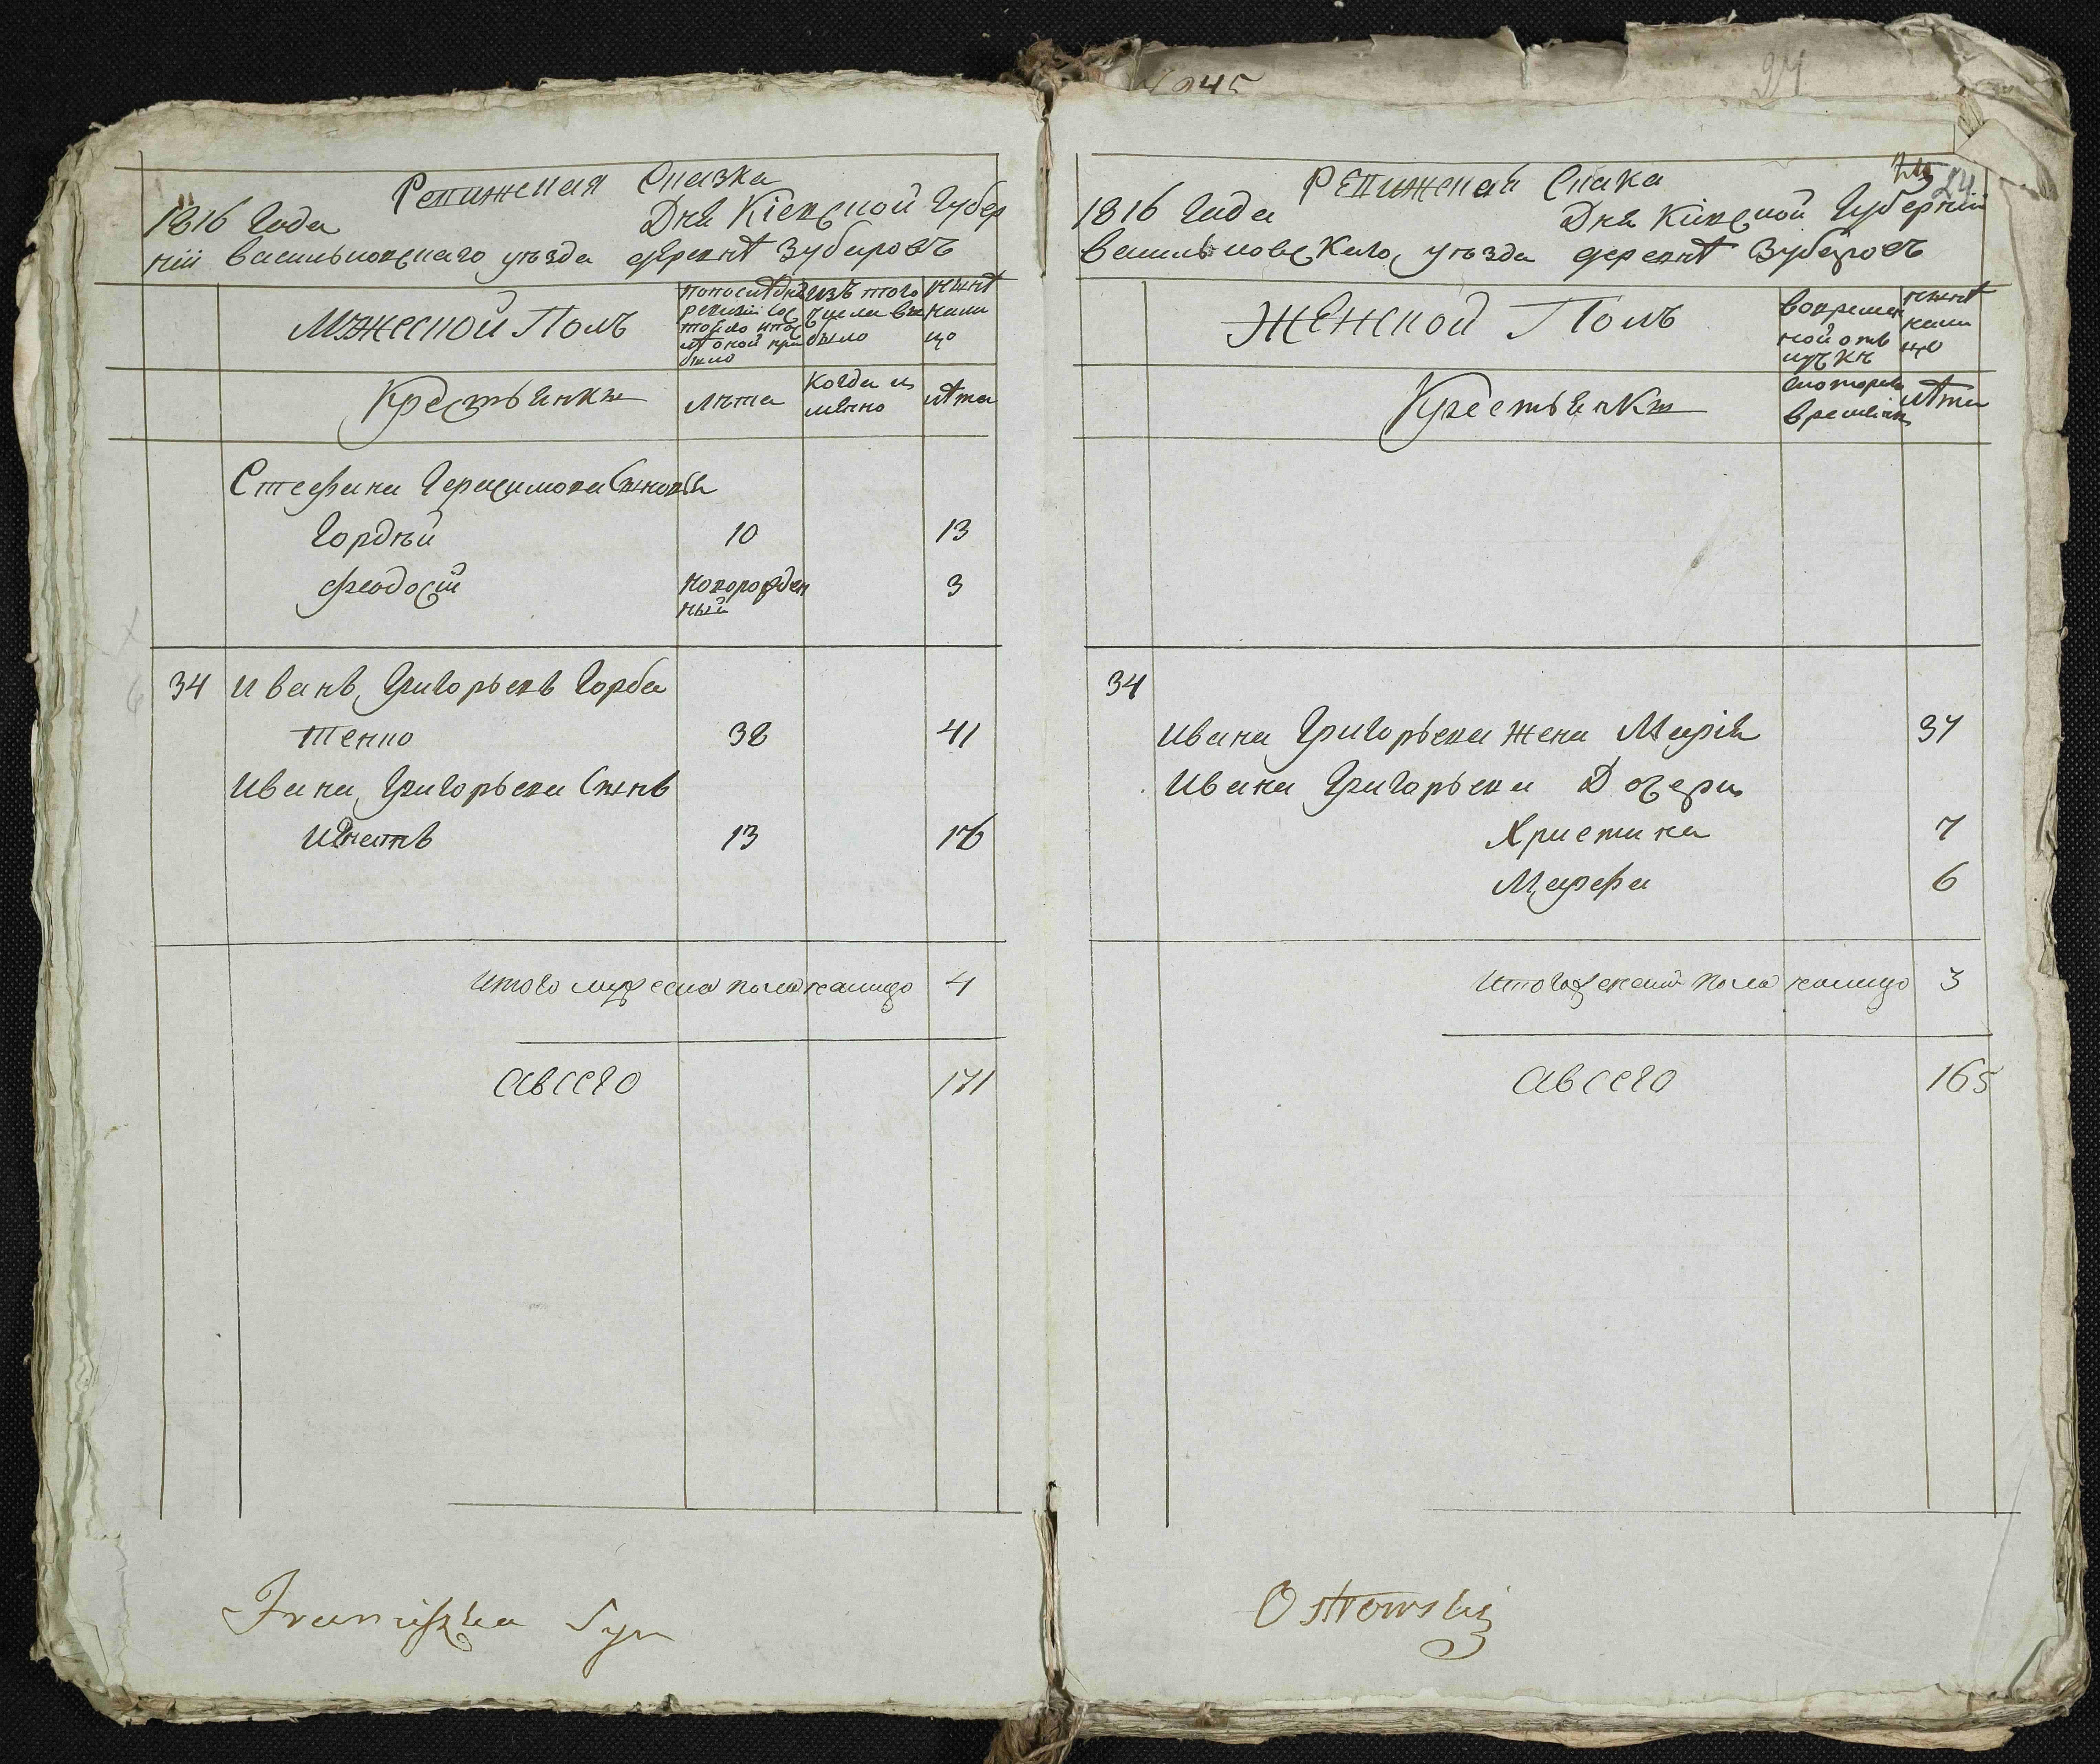 4045
24
Ревижская Сказка
1816 Года Дня Кіевской Губер
ніи васильковскаго уѣзда деревнѣ Зубаровъ
Мѫжеской Полъ
попослѣдней
ревизіи сос
тояло ипос
лѣ оной при
было
изъ того
числа вы
было
нынѣ
нали
цо
Крестьянкы
лѣта
Когда и
мѣнно
лѣта
Стефана Герасимова Сынов я
Гордѣй 10 13
Феодосій новорожден 3
ный
34 Иванъ Григорьевъ Горба
тенко 38 41
Ивана Григорьева Сынъ
Игнатъ 13 16
Итого мужеска пола налицо 4
Авсего 171
Franciszka Syn
Ревижская Скака
24
1816 Года Дня Кіевской Губерніи
васильковскаго уѣзда деревнѣ Зубаровъ
Женской Полъ
вовремен
ной отъ
лучкѣ
нынѣ
нали
цо
Крестьянкы
скоторого
времѣни
лѣта
34
Ивана Григорьева Жена Марія 37
Ивана Григорьева Дочери
Христина 7
Марфа 6
Итого женска пола налицо 3
Авсего 165
Ostrowski